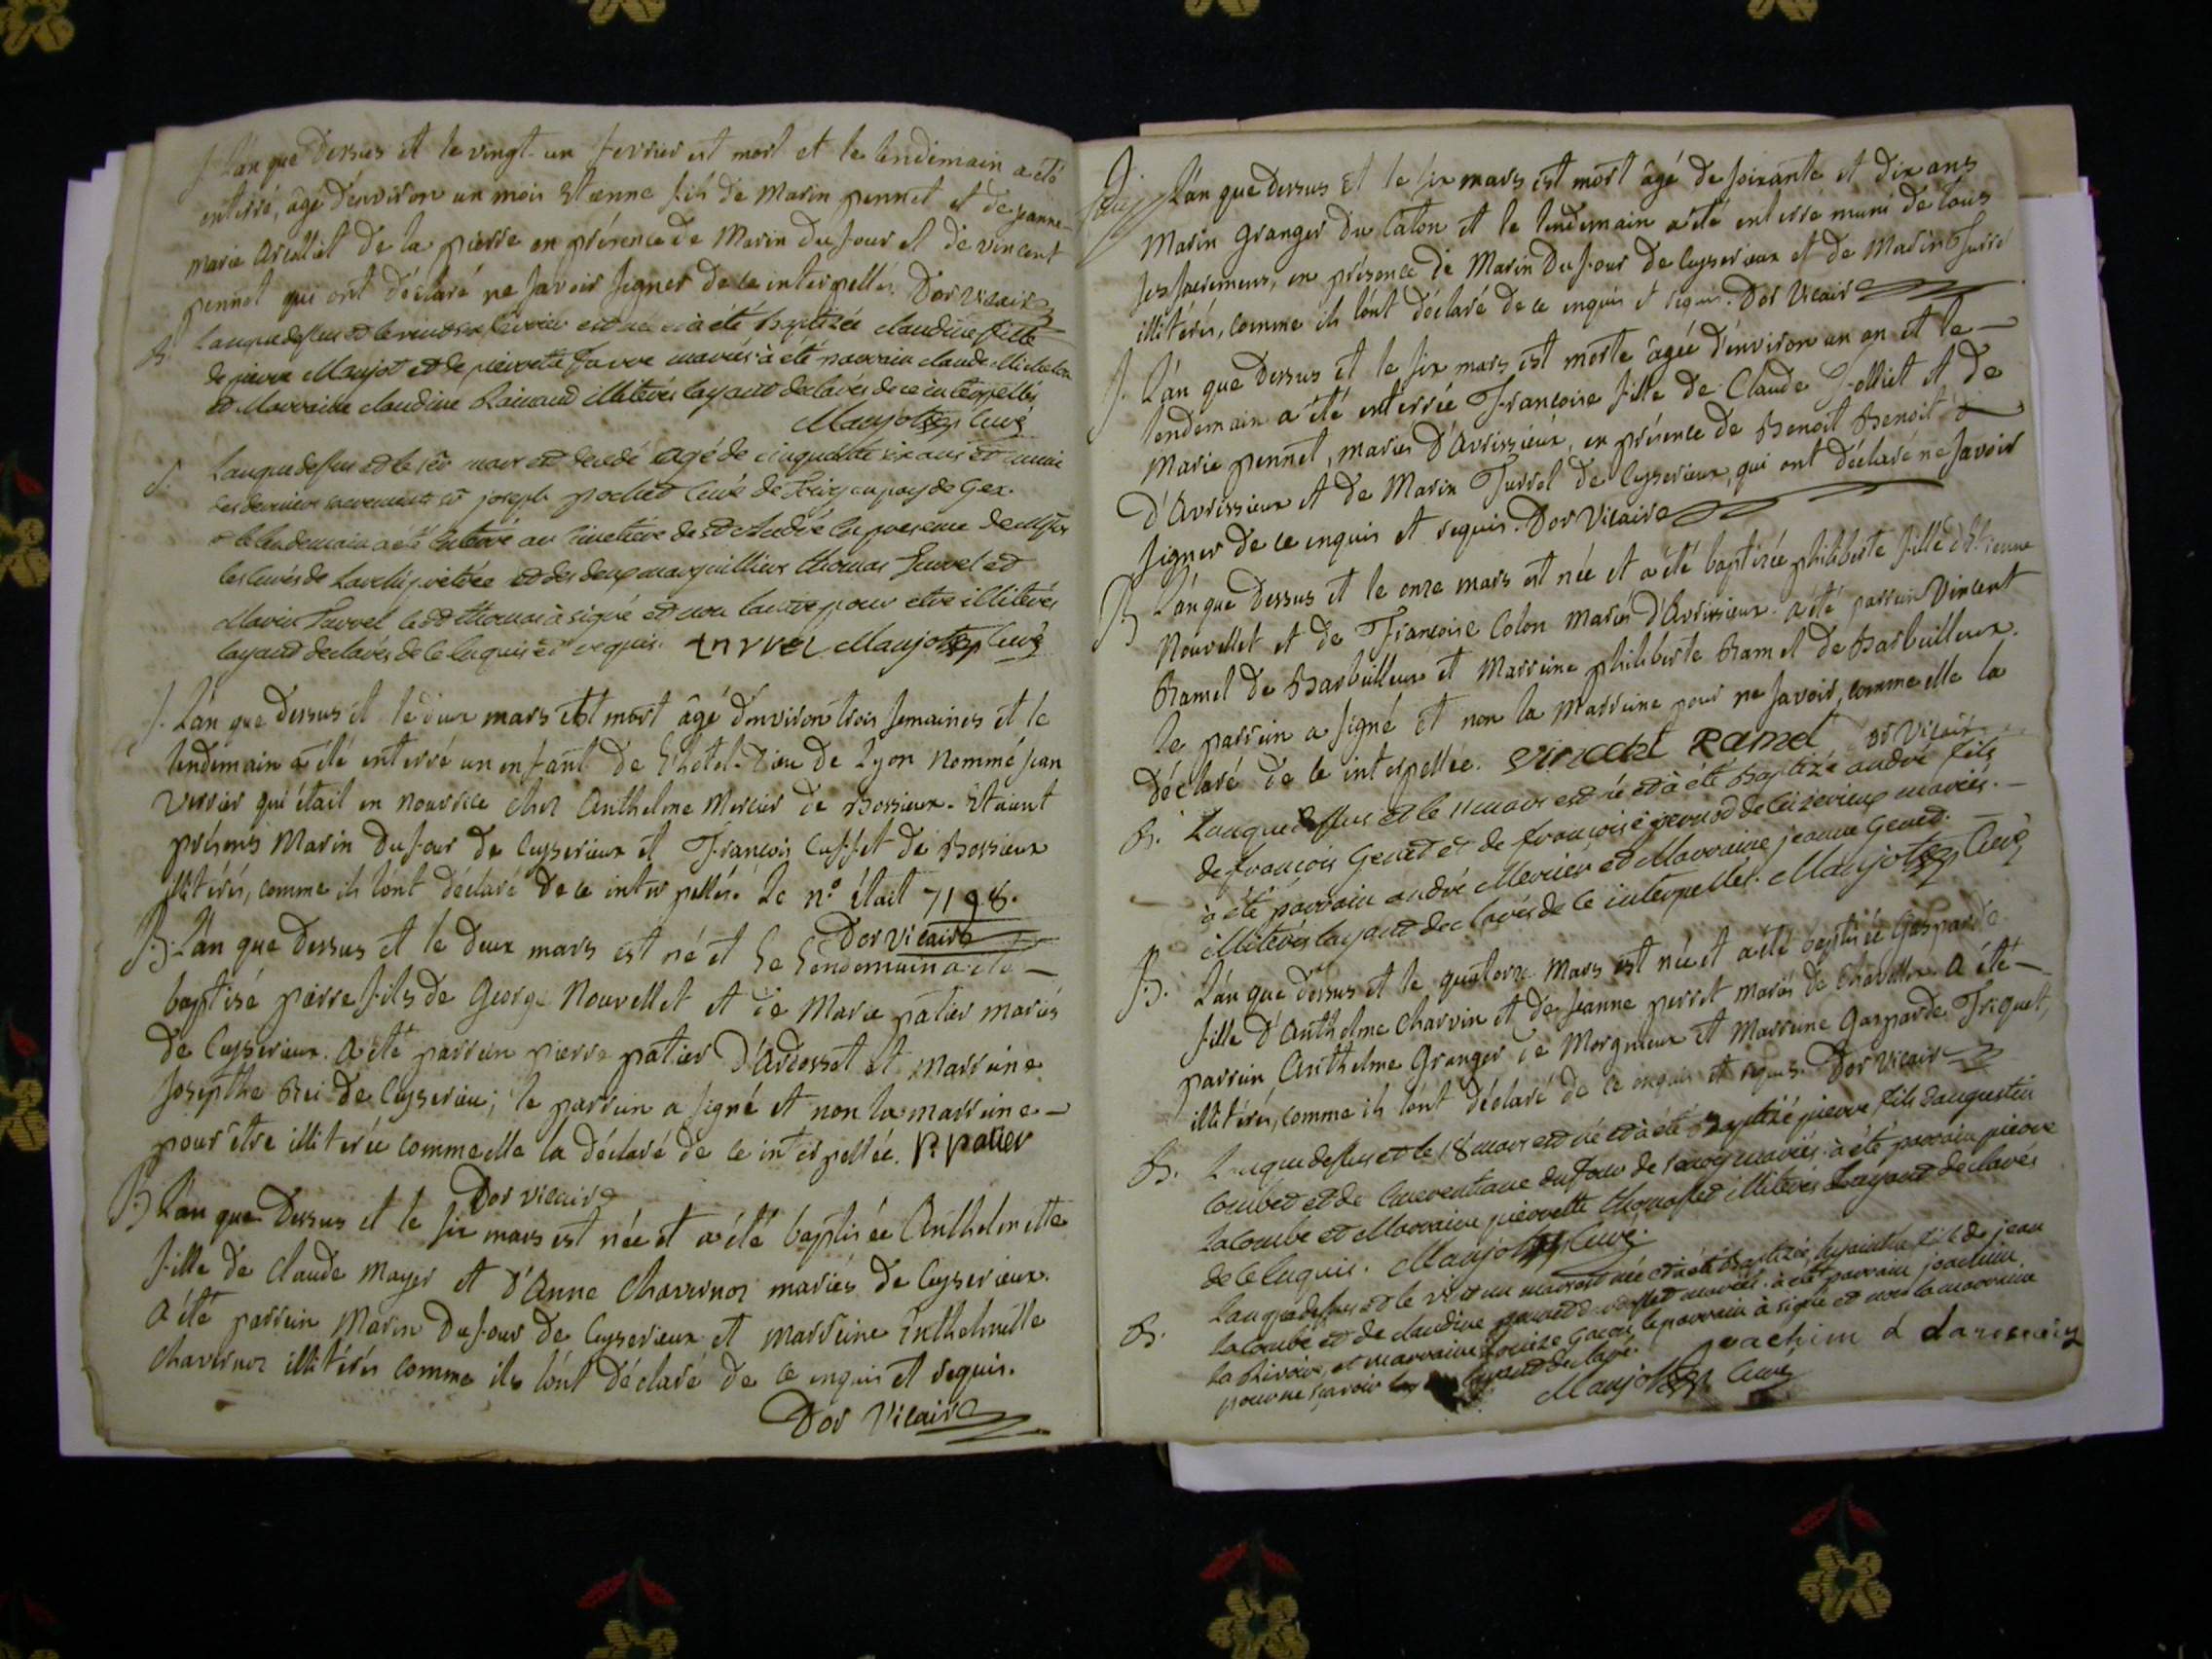 S. L'an que Dessus et le vingt-un fevrier est mort et le lendemain a été
enterré, âgé d'environ un mois Etienne fils de Marin pennet et de jeanne-
marie Arcolliet de la pierre en présence de Marin Dufour et de vincent
pennet qui ont déclaré ne savoir signer de ce interpellés. Dor Vicaire
B. Lan que dessus et le fevrier est née et a été baptizée claudine fille
de pierre Maujot et de pierrette favre mariés à été parrain claude Michelon
et Marraine claudine Rainaud illiterés layant declarés de ce interpellés
Maujot Curé
S. Lan que dessus et le 1er mars est decedé agé de cinquante six ans et muni
des derniers sacrements joseph pochet Curé de en pay de Gex.
et le lendemain a été enterré au Cimetiére de St André en presence de
les Curés de et des deux marguilliers thomas Turrel et
Marin Turrel le dt thomas à signé et non lautre pour etre illiterés
layant declarés de ce enquis et requis. turrel Maujot Curé
S. L'an que dessus et le deux mars est mort âgé d'environ trois semaines et le
lendemain a été enterré un enfant de l'hôtel-Dieu de Lyon nommé jean
verrier qui était en nourrice chez Anthelme Mercier de Bossieux. Etaient
présens Marin Dufour de Cuyserieux et François Cuffet de Bossieux
illitérés, comme ils l'ont déclaré de ce interpellés. Le n° était 7198.
Dor vicaire
B. L'an que dessus et le deux mars est né et le lendemain a été
baptisé pierre fils de George Nouvellet et de Marie patier mariés
de Cuyserieux. A été parrein pierre patier D'Arcosset et Marreine
Josephte Rei de Cuyserieu; le parrein a signé et non la marreine
pour être illiterée comme elle la déclaré de ce interpellée. P. patier
Dor vicaire
B L'an que Dessus et le six mars est née et a été baptisée Anthelmette
fille de Claude Mayer et D'Anne Chavernoz mariés de Cuyserieux.
A été parrein Marin Dufour de Cuyserieux et marreine Enthelmette
chavernoz illitérés comme ils l'ont déclaré de ce enquis et requis.
Dor Vicaire
S. L'an que Dessus et le six mars est mort âgé de soixante et dix ans
Marin Granger du Caton et le lendemain a été enterré muni de tous
ses sacremens, en présence de Marin Dufour de Cuyserieux et de Marin Turrel
illitérés, comme ils l'ont déclaré de ce enquis et requis. Dor Vicaire
S. L'an que Dessus et le six mars est morte âgée d'environ un an et le
lendemain a été enterrée Françoise fille de Claude Jolliet et de
Marie pennet, mariés D'Avrissieux, en présence de Benoit Benoit
D'Avrissieux et de Marin Turrel de Cuyserieux, qui ont déclaré ne savoir
signer de ce enquis et requis. Dor Vicaire
B L'an que Dessus et le onze mars est née et a été baptizée philiberte fille d'Etienne
Nouvellet et de Françoise Colon Mariés D'Avrissieux. a été parrein Vincent
Ramel de Barbeilleux et Marreine philiberte Ramel de Barbeilleux.
le parrein a signé et non la Marreine pour ne savoir, comme elle la
déclaré de ce interpellée. Vincent Ramel Dor Vicair
B. Lan que dessus et le 11 mars est né et à été Baptizé andré fils
de françois Genet et de françoise pernod de Cuizerieux mariés.
à été parrain andré Mercier et Marraine jeanne Genet.
illiterés layant declarés de ce interpellés. Maujot Curé
B. L'an que dessus et le quatorze Mars est née et a été baptisée Gasparde
fille D'Anthelme Charvin et de Jeanne perret mariés de Chavillon a été
parrein Anthelme Granger de Morgnieux et Marreine Gasparde Triquet,
illitérés, comme ils l'ont déclaré de ce enquis et requis. Dor Vicair
B. Lan que dessus et le 18 mars est né et à été Baptizé pierre fils daugustin
Combet et de Dufour de mariés. à été parrain pierre
Lacombe et Marraine pierrette thomasset illiterés Layant declarés
de ce Enquis. Maujot Curé
B. Lan que dessus et le vint un mars est née et à été Baptizée hyacinthe fille de jean
lacombe et de claudine mariés. à été parrain joachim
la Riviere, et marraine Louise Gacon, le parrain à signé et non la marraine
pour ne sçavoir layant declaré. joachim
Maujot Curé